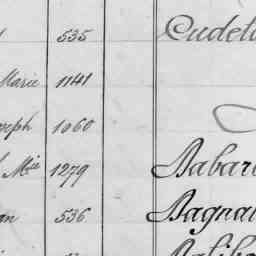 535 Cudel
Marie 1141
seph 1060
Mie 1279 Babar
536 Bagna